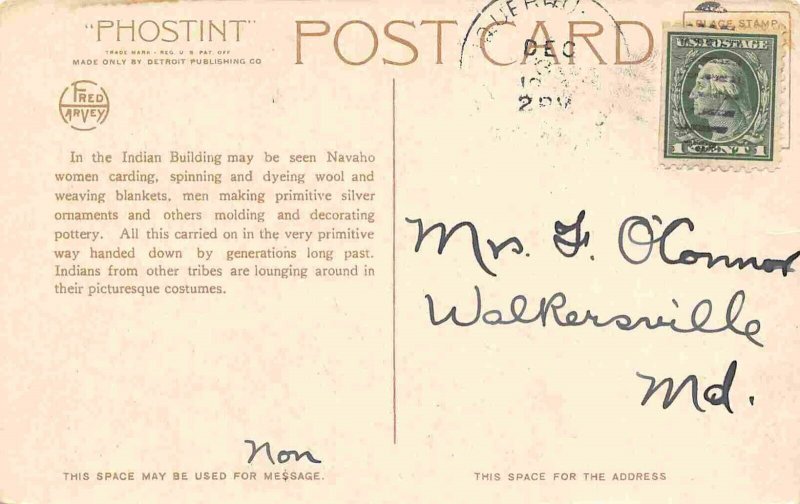 "PHOSTINT"
TRADE MARK - REG. U S PAT. OFF
MADE ONLY BY DETROIT PUBLISHING CO
POST CARD
PLACE STAMP
DEC
U.S. POSTAGE
1 CENT 1
FRED HARVEY
In the Indian Building may be seen Navaho
women carding, spinning and dyeing wool and
weaving blankets, men making primitive silver
ornaments and others molding and decorating
pottery. All this carried on in the very primitive
way handed down by generations long past.
Indians from other tribes are lounging around in
their picturesque costumes.
Mrs. F. O'Connor
Walkersville
Md.
Non
THIS SPACE MAY BE USED FOR MESSAGE.
THIS SPACE FOR THE ADDRESS